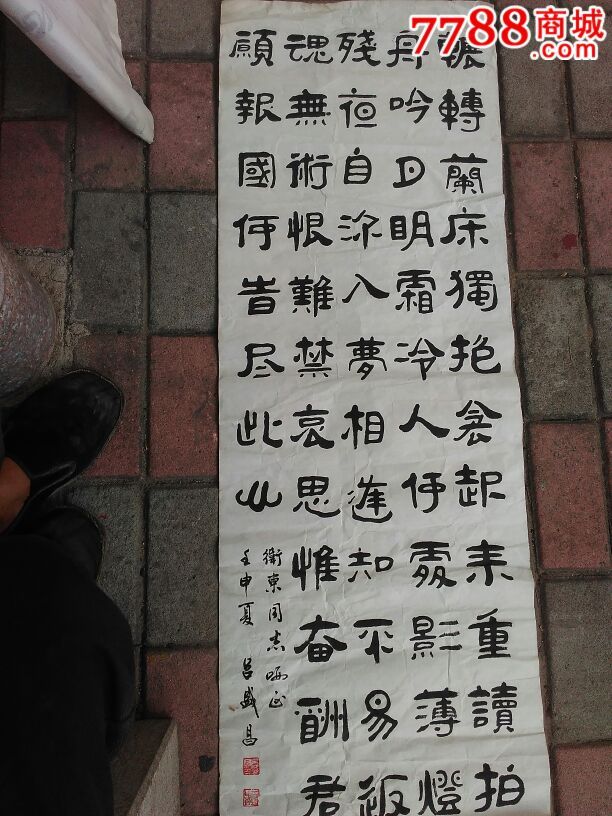 7788商城
.com
輾轉蘭床獨抱衾起来重讀拍
舟吟月明霜冷人何處影薄燈
殘夜自深入夢相逢知不易返
魂無術恨難禁哀思惟奋酬君
願報國何旹尽此心
衛東同志哂正
壬申夏 吕盛昌